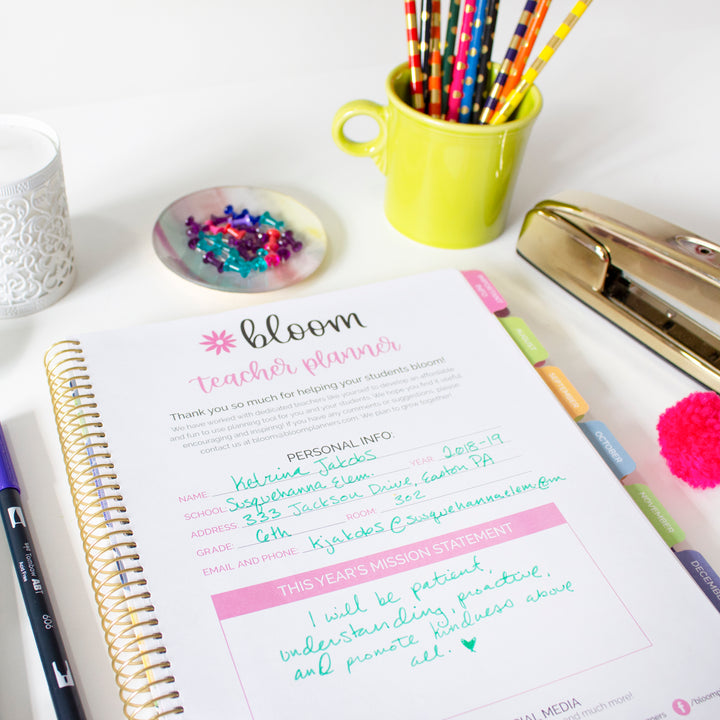 bloom
teacher planner
Thank you so much for helping your students bloom!
We have worked with dedicated teachers like yourself to develop an affordable
and fun to use planning tool for you and your students. We hope you find it useful,
encouraging and inspiring! If you have any comments or suggestions, please
contact us at bloom@bloomplanners.com. We plan to grow together!
PERSONAL INFO:
NAME Ketrina Jakobs YEAR 2018-19
SCHOOL Susquehanna Elem.
ADDRESS: 333 Jackson Drive, Easton PA
GRADE: 6th ROOM: 302
EMAIL AND PHONE: kjakobs@susquehannaelem@m
THIS YEAR'S MISSION STATEMENT
I will be patient,
understanding, proactive,
and promote kindness above
all.
SOCIAL MEDIA
and much more!
IMPORTANT INFO
AUGUST
SEPTEMBER
OCTOBER
NOVEMBER
DECEMBER
Tombow ABT
606